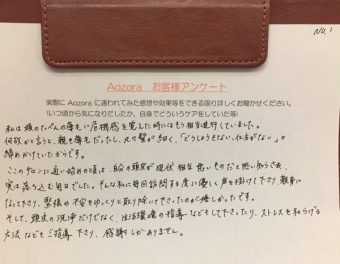 No.1
Aozora お客様アンケート
実際に Aozora に通われてみた感想や効果等をできる限り詳しくお聞かせください。
(いつ頃から気になりだしたか、自身でどういうケアをしていた等)
私は頭のてっぺんの薄毛に危機感を覚えた時にはもう相当進行していました。
何故かと言うと、親も薄毛だったし、元々髪が細く、「どうしようもない、仕方がない」と
諦めかけていたからです。
このサロンに通い始めの頃は、自分の頭皮が現状相当悪いものだと思い知らされ、
実は落ち込む毎日でした。そんな私に毎回訪問する度に優しく声を掛けて下さり、親身に
なって下さり、緊張や不安をゆっくりと取り除いて下さったのが嬉しかったです。
そして、頭皮の洗浄だけでなく、生活環境の指導などもして下さったり、ストレスを和らげる
方法などもご指導下さり、感謝しかありません。